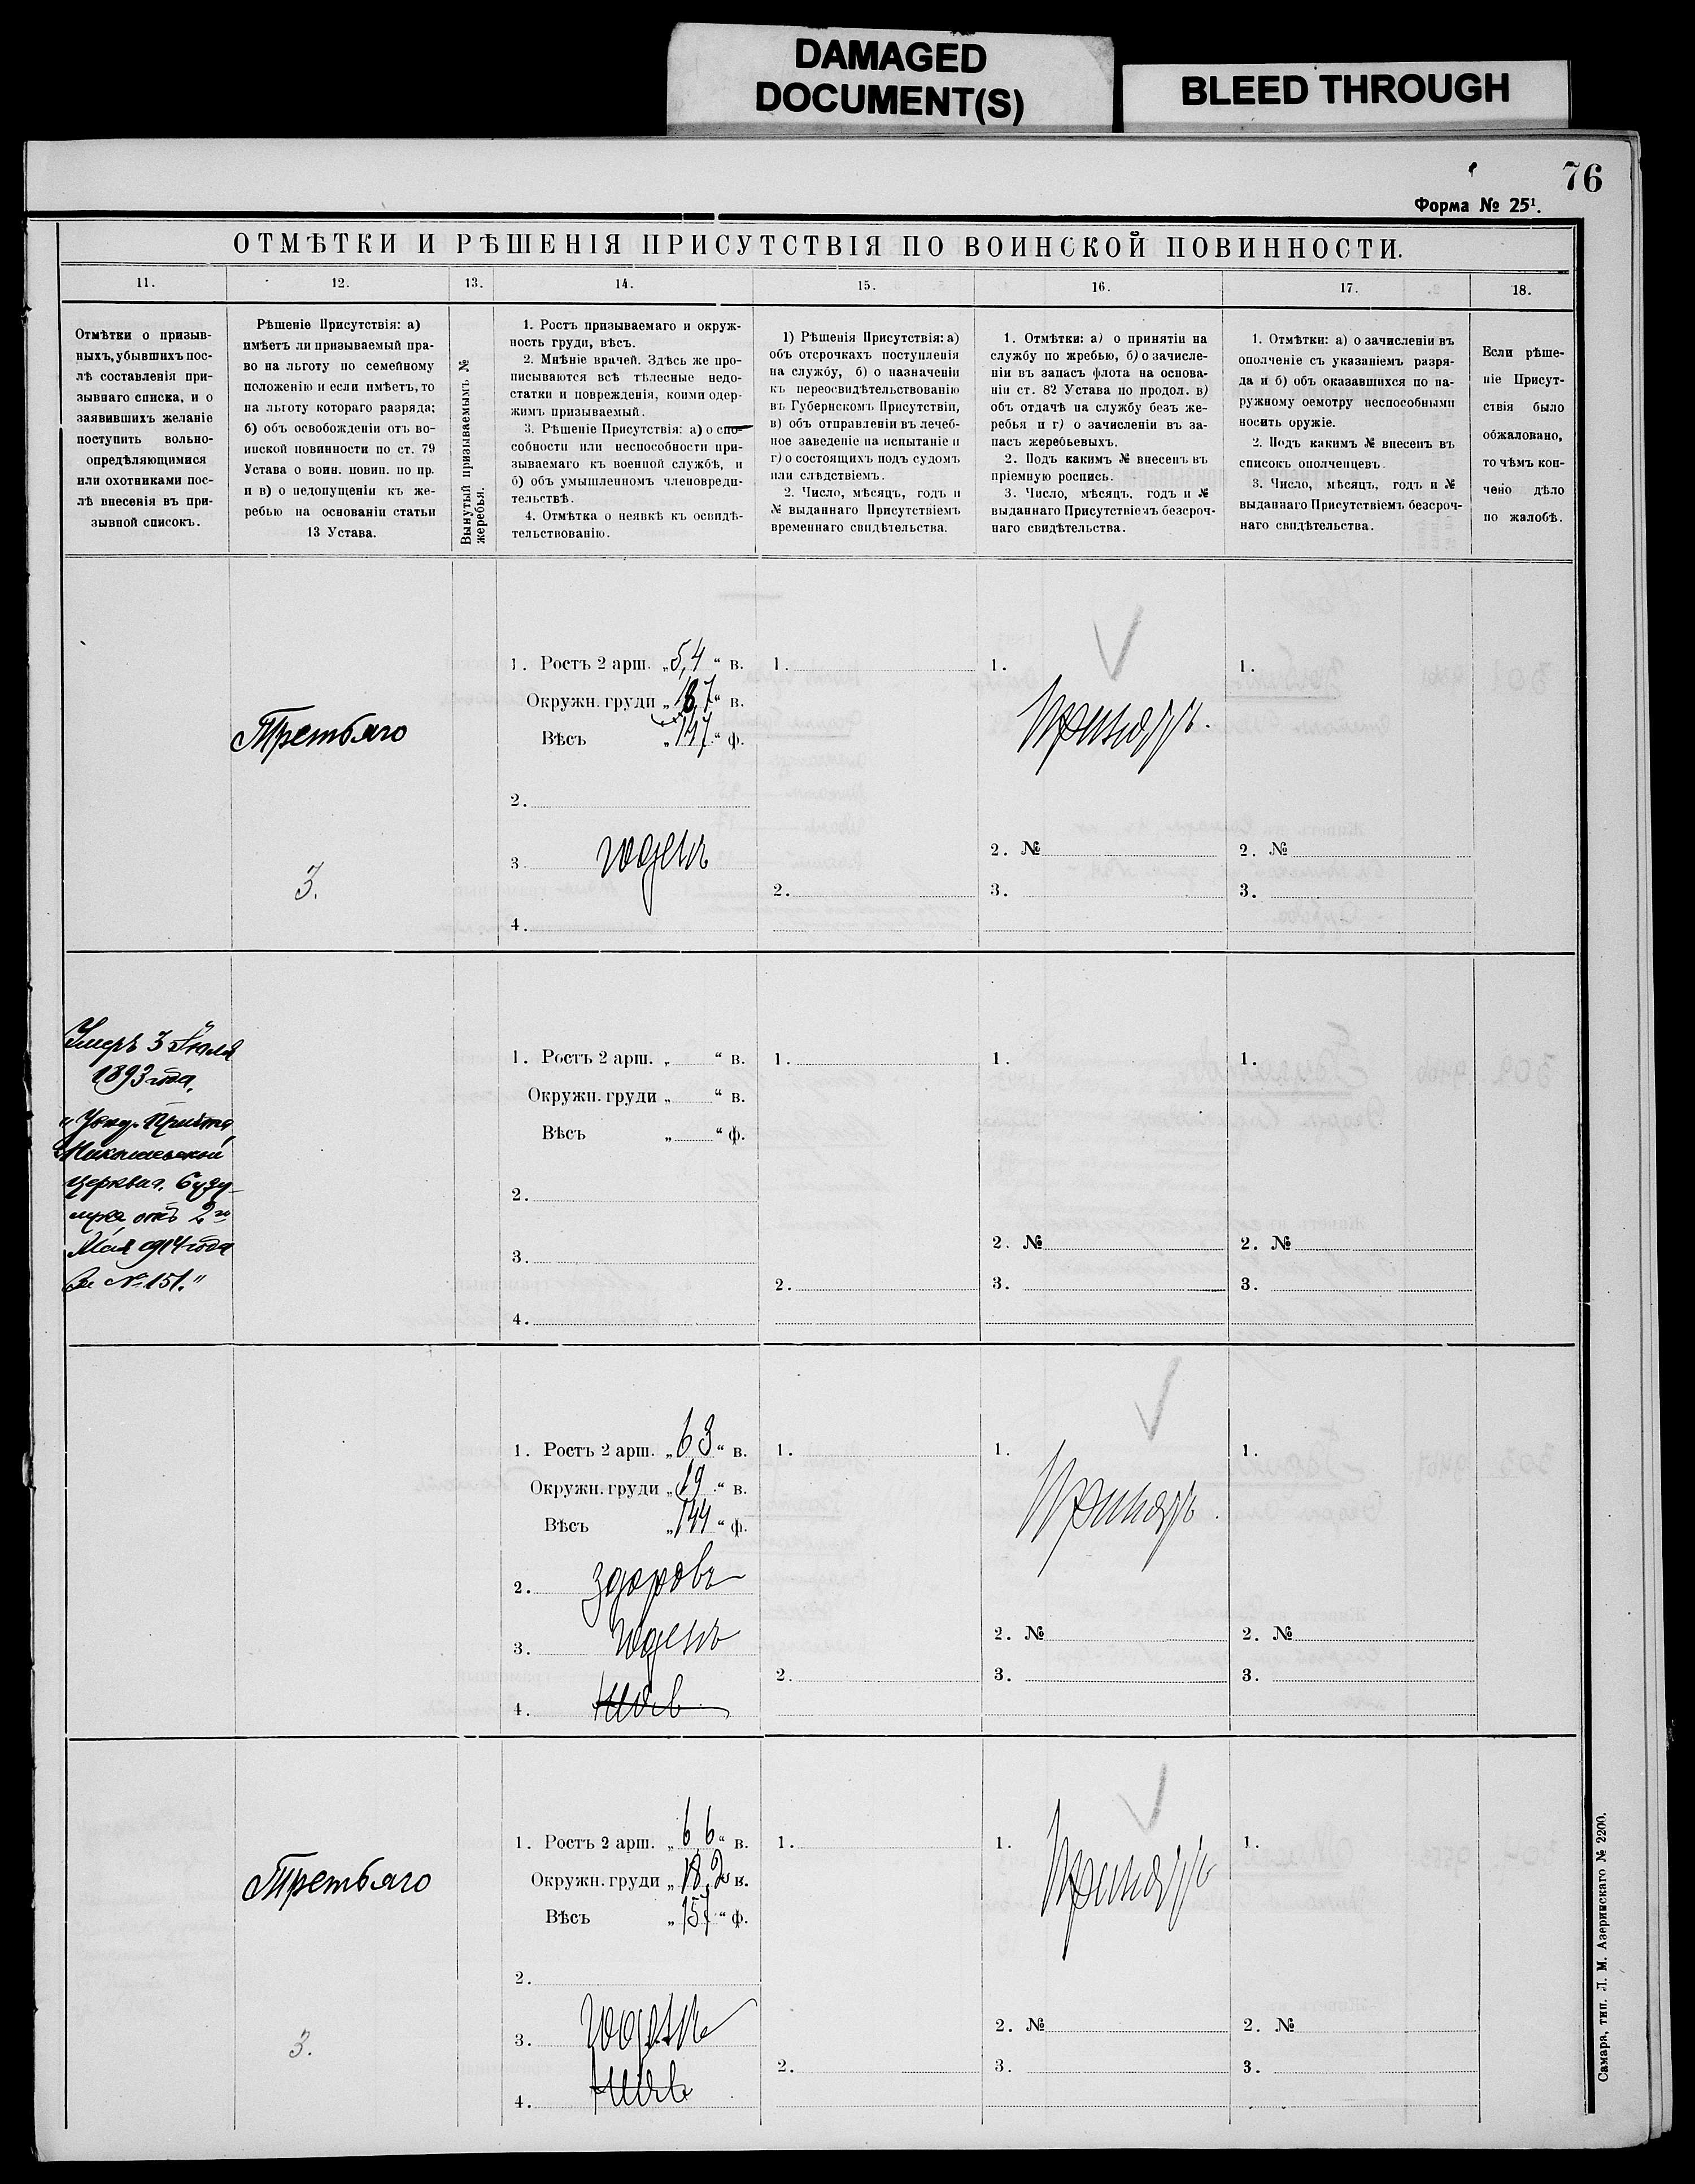 DAMAGED
DOCUMENT(S)
BLEED THROUGH
76
Форма № 25¹.
ОТМѢТКИ И РѢШЕНІЯ ПРИСУТСТВІЯ ПО ВОИНСКОЙ ПОВИННОСТИ.
11.
12.
13.
14.
15.
16.
17.
18.
Отмѣтки о призыв-
ныхъ, убывшихъ пос-
лѣ составленія при-
зывнаго списка, и о
заявившихъ желаніе
поступить вольно-
опредѣляющимися
или охотниками пос-
лѣ внесенія въ при-
зывной списокъ.
Рѣшеніе Присутствія: а)
имѣетъ ли призываемый пра-
во на льготу по семейному
положенію и если имѣетъ, то
на льготу котораго разряда;
б) объ освобожденіи отъ во-
инской повинности по ст. 79
Устава о воин. повин. по пр.
и в) о недопущеніи къ же-
ребью на основаніи статьи
13 Устава.
Вынутый призываемымъ №
жеребья.
1. Ростъ призываемаго и окруж-
ность груди, вѣсъ.
2. Мнѣніе врачей. Здѣсь же про-
писываются всѣ тѣлесные недо-
статки и поврежденія, коими одер-
жимъ призываемый.
3. Рѣшеніе Присутствія: а) о спо-
собности или неспособности при-
зываемаго къ военной службѣ, и
б) объ умышленномъ членовреди-
тельствѣ.
4. Отмѣтка о неявкѣ къ освидѣ-
тельствованію.
1) Рѣшенія Присутствія: а)
объ отсрочкахъ поступленія
на службу, б) о назначеніи
къ переосвидѣтельствованію
въ Губернскомъ Присутствіи,
в) объ отправленіи въ лечеб-
ное заведеніе на испытаніе и
г) о состоящихъ подъ судомъ
или слѣдствіемъ.
2. Число, мѣсяцъ, годъ и
№ выданнаго Присутствіемъ
временнаго свидѣтельства.
1. Отмѣтки: а) о принятіи на
службу по жребью, б) о зачисле-
ніи въ запасъ флота на основа-
ніи ст. 82 Устава по продол. в)
объ отдачѣ на службу безъ же-
ребья и г) о зачисленіи въ за-
пасъ жеребьевыхъ.
2. Подъ какимъ № внесенъ въ
пріемную роспись.
3. Число, мѣсяцъ, годъ и №
выданнаго Присутствіемъ безсроч-
наго свидѣтельства.
1. Отмѣтки: а) о зачисленіи въ
ополченіе съ указаніемъ разря-
да и б) объ оказавшихся по на-
ружному осмотру неспособными
носить оружіе.
2. Подъ какимъ № внесенъ въ
списокъ ополченцевъ.
3. Число, мѣсяцъ, годъ и №
выданнаго Присутствіемъ безсроч-
наго свидѣтельства.
Если рѣше-
ніе Присут-
ствія было
обжаловано,
то чѣмъ кон-
чено дѣло
по жалобѣ.
Третьяго
3.
1. Ростъ 2 арш. „5,4“ в.
Окружн. груди „18,7“ в.
Вѣсъ „147“ ф.
2.
3. годенъ
4.
1.
2.
1.
Принятъ.
2. №
3.
1.
2. №
3.
Умеръ 3 Іюля
1893 года,
Николаевской
церкви г. Бузу-
лука отъ 2го
Мая 1914 года
за № 151."
1. Ростъ 2 арш. „ “ в.
Окружн. груди „ “ в.
Вѣсъ „ “ ф.
2.
3.
4.
1.
2.
1.
2. №
3.
1.
2. №
3.
1. Ростъ 2 арш. „6 3“ в.
Окружн. груди „19“ в.
Вѣсъ „144“ ф.
2. здоровъ
3. годенъ
4.
1.
2.
1.
Принятъ.
2. №
3.
1.
2. №
3.
Третьяго
3.
1. Ростъ 2 арш. „6 6“ в.
Окружн. груди „18,2“ в.
Вѣсъ „157“ ф.
2.
3. годенъ
4.
1.
2.
1.
Принятъ
2. №
3.
1.
2. №
3.
Самара, тип. Л. М. Азеринскаго № 2200.